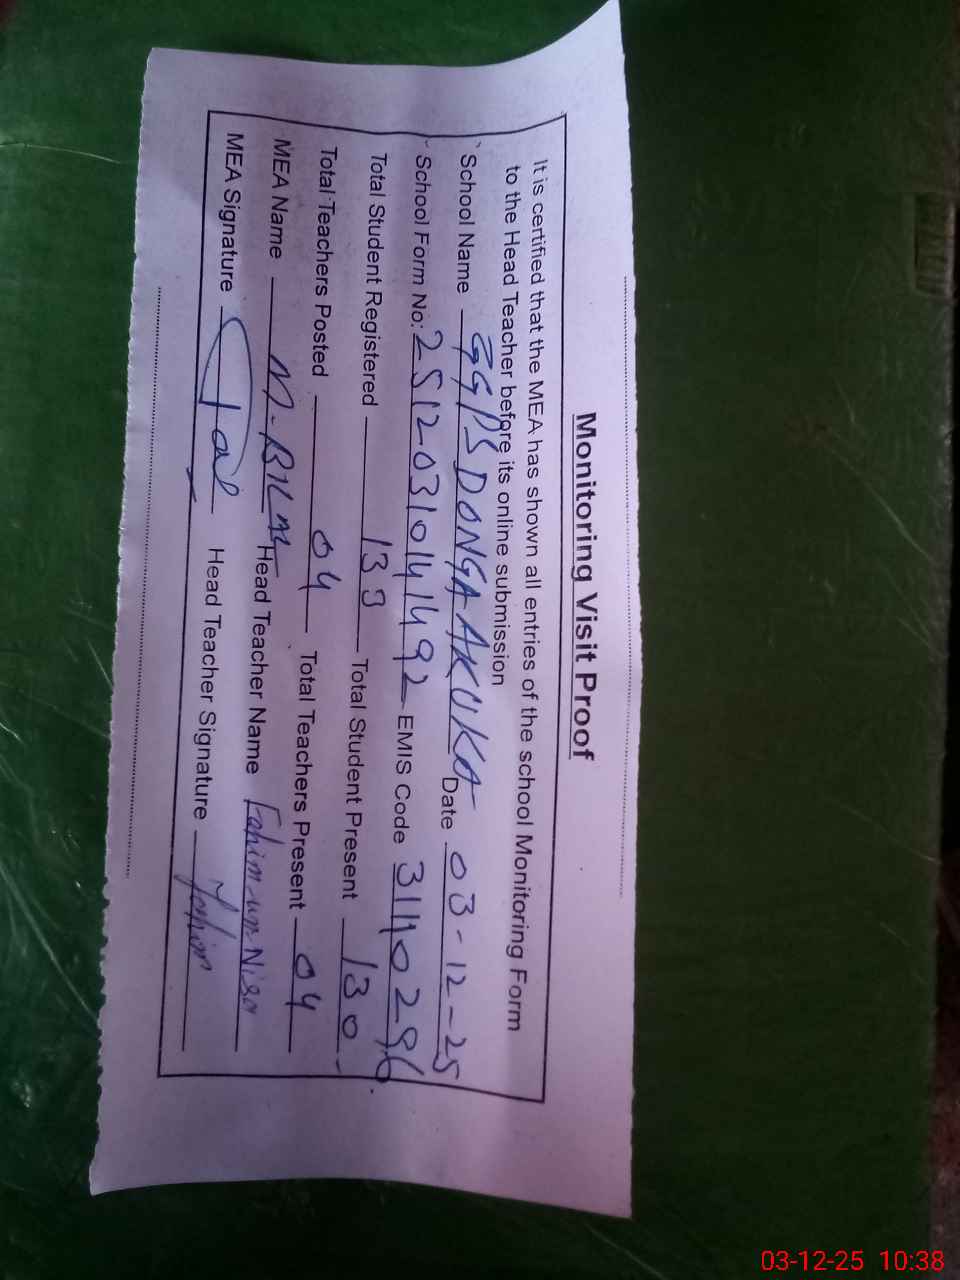 Monitoring Visit Proof
It is certified that the MEA has shown all entries of the school Monitoring Form
to the Head Teacher before its online submission
School Name GGPS DONGA AKUKA Date 03-12-25
School Form No: 2512031041492 EMIS Code 31110296
Total Student Registered 133 Total Student Present 130
Total Teachers Posted 04 Total Teachers Present 04
MEA Name M. BILAL Head Teacher Name Fahim-un-Nisa
MEA Signature Head Teacher Signature Fahim
03-12-25 10:38